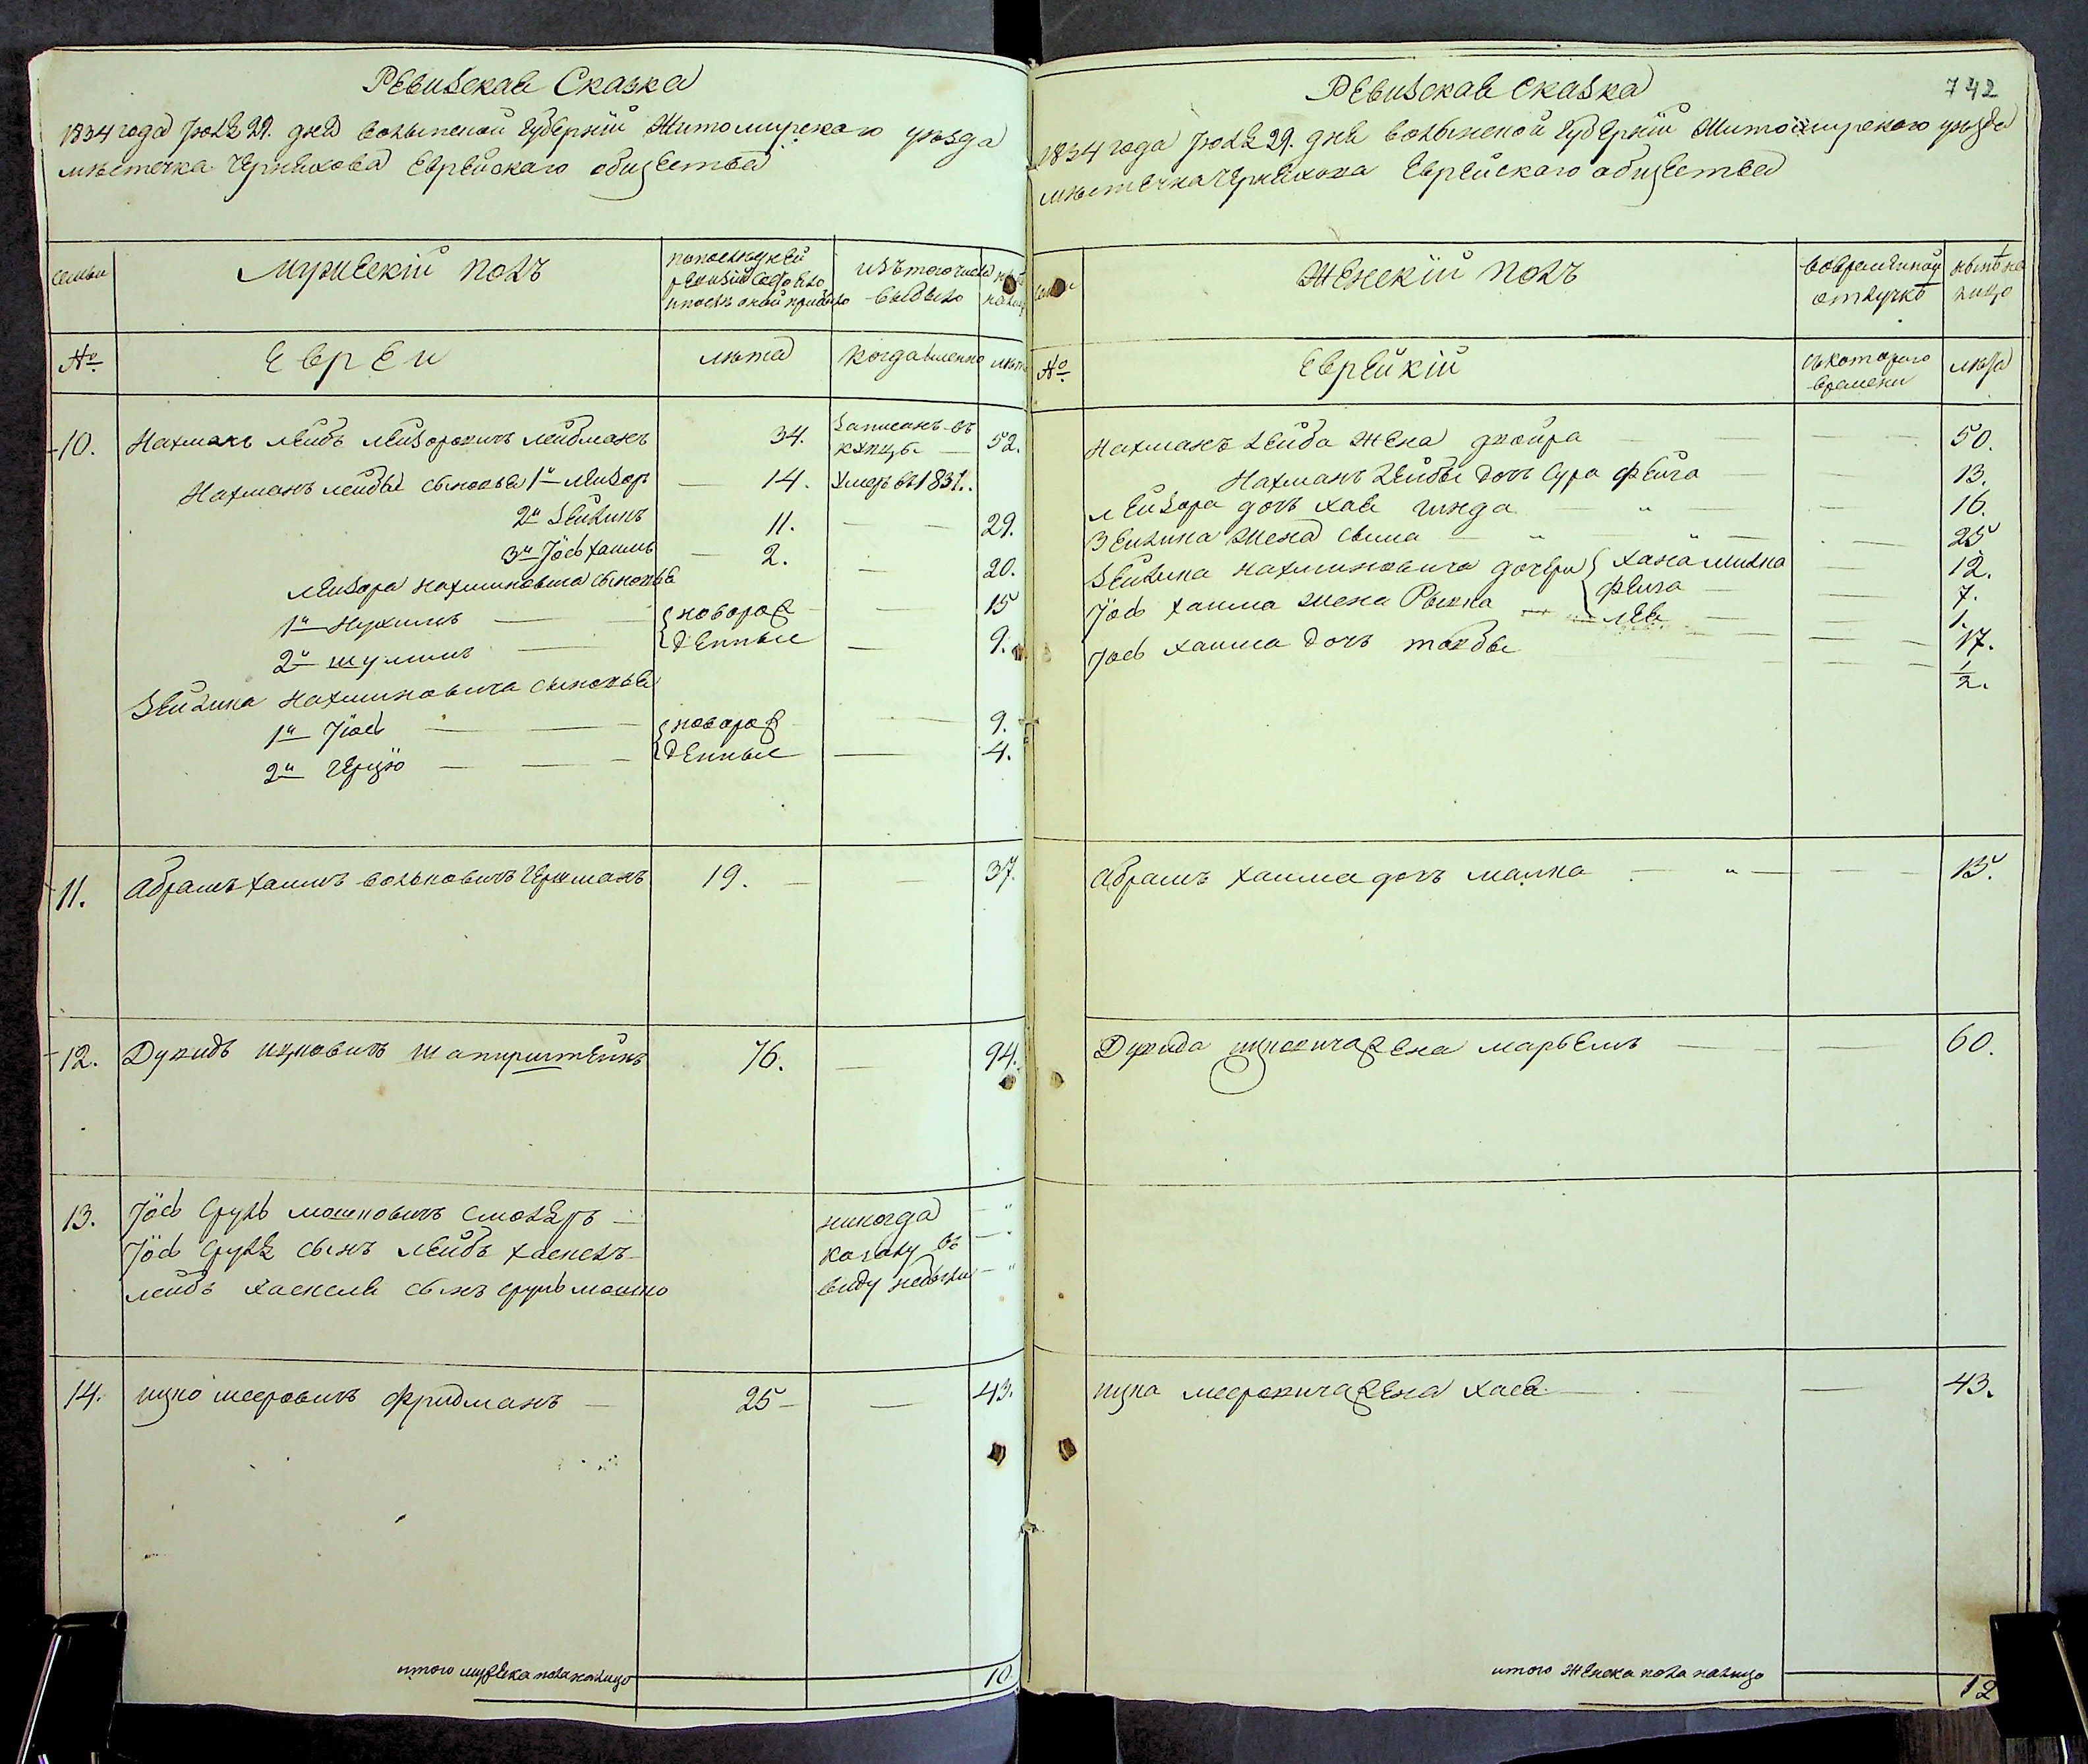 Ревизская Сказка
1834 года Июля 29. дня Волынской Губернии Житомирского уезда
местечка Черняхова Еврейского общества
семьи
Мужеский полъ
по последней
ревизии состояло
и после оной прибыло
изъ того числа
выбыло
№
Евреи
лета
когда именно
лета
10.
Нахманъ Лейбъ Лейзоровичъ Лейбманъ
34.
Записанъ въ
купцы
52.
Нахманъ Лейбы сыновья 1й Лейзоръ
14.
Умеръ въ 1831.
2й Зейликъ
11.
29.
3й Іось Хаимъ
2.
20.
Лейзора Нахмановича сыновья
1й Нухимъ
новорож
15
2й Шулимъ
денные
9.
Зейлика Нахмановича сыновья
1й Іось
новорож
9.
2й Герцко
денные
4.
11.
Абрамъ Хаимъ Вольковичъ Гершманъ
19.
37.
12.
Дувидъ Ицковичъ Шапирштейнъ
76.
94.
13.
Іось Сруль Мошковичъ Смоляръ
никогда
Іось Суля сынъ Лейбъ Хаскель
кагалу въ
Лейбъ Хаскеля сынъ Сруль Мошко
виду небыли
14.
Ицко Мееровичъ Фридманъ
25
43.
итого мужеска пола налицо
10.
742
Ревизская Сказка
1834 года Июля 29. дня Волынской Губернии Житомирского уезда
местечка Черняхова Еврейского общества
семьи
Женский полъ
во временной
отлучке
ныне на
лицо
№
Еврейкий
съ которого
времени
лета
Нахманъ Лейба жена Двойра
50.
Нахманъ Лейбы дочь Сура Фейга
13.
Лейзора дочь Хая
16.
Зейлика жена Сима
25
Зейлика Нахмановича дочери Хана Милка
12.
Фейга
7.
Лея
1.
Іось Хаима жена Рывка
17.
Іось Хаима дочь Товбы
1/2.
Абрамъ Хаима дочь Малка
15.
Дувида Ицковича жена Марьемъ
60.
Ицка Мееровича жена Хая
43.
итого женска пола налицо
12